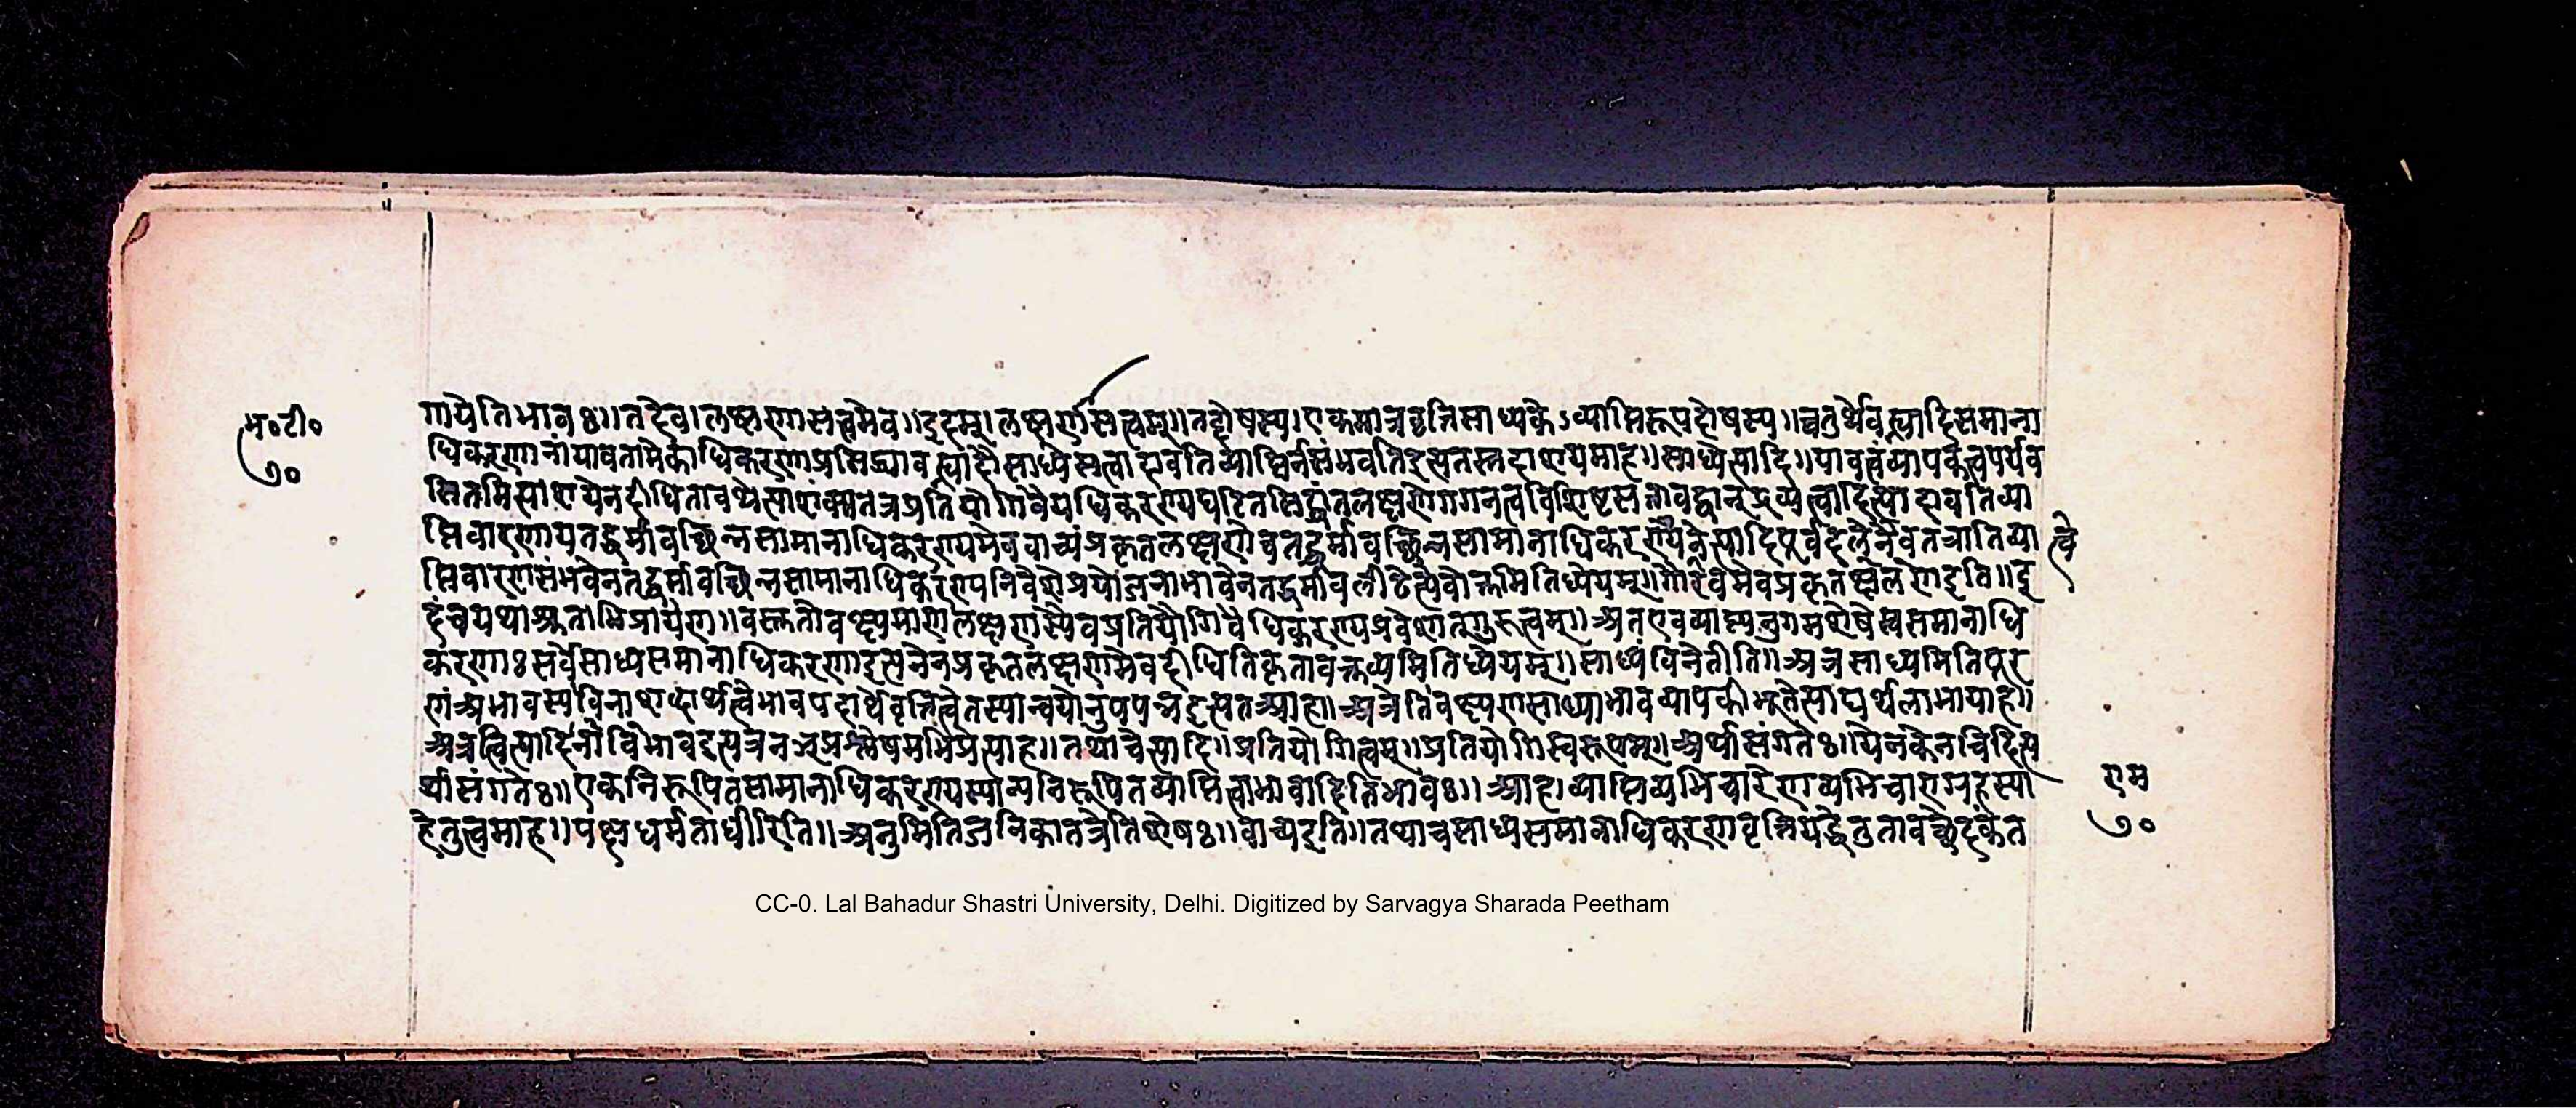 म॰टी॰
७०
गायेति भावः॥ तदेव। लक्षणासत्त्वमेव॥ इदम्। लक्षणासत्त्वम्॥ तद्दोषस्य। एकमात्रवृत्तिसाध्यकेऽव्याप्तिरूपदोषस्य॥ चतुर्थेवह्न्यादिसमाना
धिकरणानांयावतामेकाधिकरणाप्रसिद्ध्यावह्न्यादौसाध्येसत्वादावतिव्याप्तिर्नसंभवतिइत्यतस्तदाशयमाह॥ साध्येत्यादि॥ यावत्त्वंव्यापकत्वपर्यव
सितमित्याशयेनदीधितावथेत्या प्रतियोगिवैयधिकरण्यघटितसिद्धांतलक्षणेगगनत्वविशिष्टसत्तावद्वान्द्रव्यत्वादित्यादावतिव्या
प्तिवारणायतद्धर्मावच्छिन्नसामानाधिकरण्यमेववाच्यंप्रकृतलक्षणेचतद्धर्मावच्छिन्नसामानाधिकरण्येनेत्यादिपूर्वदलेनैवतत्रातिव्या
त्वे
प्तिवारणसंभवेनतद्धर्मावच्छिन्नसामानाधिकरण्यनिवेशेप्रयोजनाभावेनतद्धर्मावलीढेत्येवोक्तमितिध्येयम्॥ गौरवमेवप्रकृतलक्षणेद्रवि॥ इ
दंचयथाश्रुताभिप्रायेण॥ वस्तुतोवक्ष्यमाणलक्षणस्यैवप्रतियोगिवैयधिकरण्यप्रवेशात्गुरुत्वम्॥ अतएवव्याप्त्यनुगमशेषेस्वसमानाधि
करणाः सर्वेसाध्यसमानाधिकरणाइत्यनेनप्रकृतलक्षणमेवदीधितिकृतावक्तव्यमितिध्येयम्॥ साध्यंविनेतीति॥ अत्रसाध्यमितिपूर
णंअभावस्यविनाशब्दार्थत्वेभावपदार्थेवृत्तित्वेतस्यान्वयोनुपपन्नइत्यतआह॥ अत्रेतिवक्ष्यमाणसाध्याभावव्यापकीभूतेत्याद्यर्थलाभायाह॥
अत्रत्वित्यादिनाविभावइत्यत्रनञ्प्रश्लेषमभिप्रेत्याह॥ तथाचेत्यादि॥ प्रतियोगित्वम्॥ प्रतियोगिस्वरूपम्॥ अर्थासंगतेः॥ येनकेनचिदित्य
र्थासंगतेः॥ एकनिरूपितसामानाधिकरण्यस्यान्यनिरूपितव्याप्तित्वाभावादितिभावः॥ आह। व्याप्तिव्यभिचारेणव्यभिचारग्रहस्या
हेतुत्वमाह॥ पक्षधर्मताधीरिति॥ अनुमितिजनिकातत्रेतिशेषः॥ वाच्यइति॥ तथाचसाध्यसमानाधिकरणवृत्तियद्धेतुतावच्छेदकंत
राम
७०
CC-0. Lal Bahadur Shastri University, Delhi. Digitized by Sarvagya Sharada Peetham